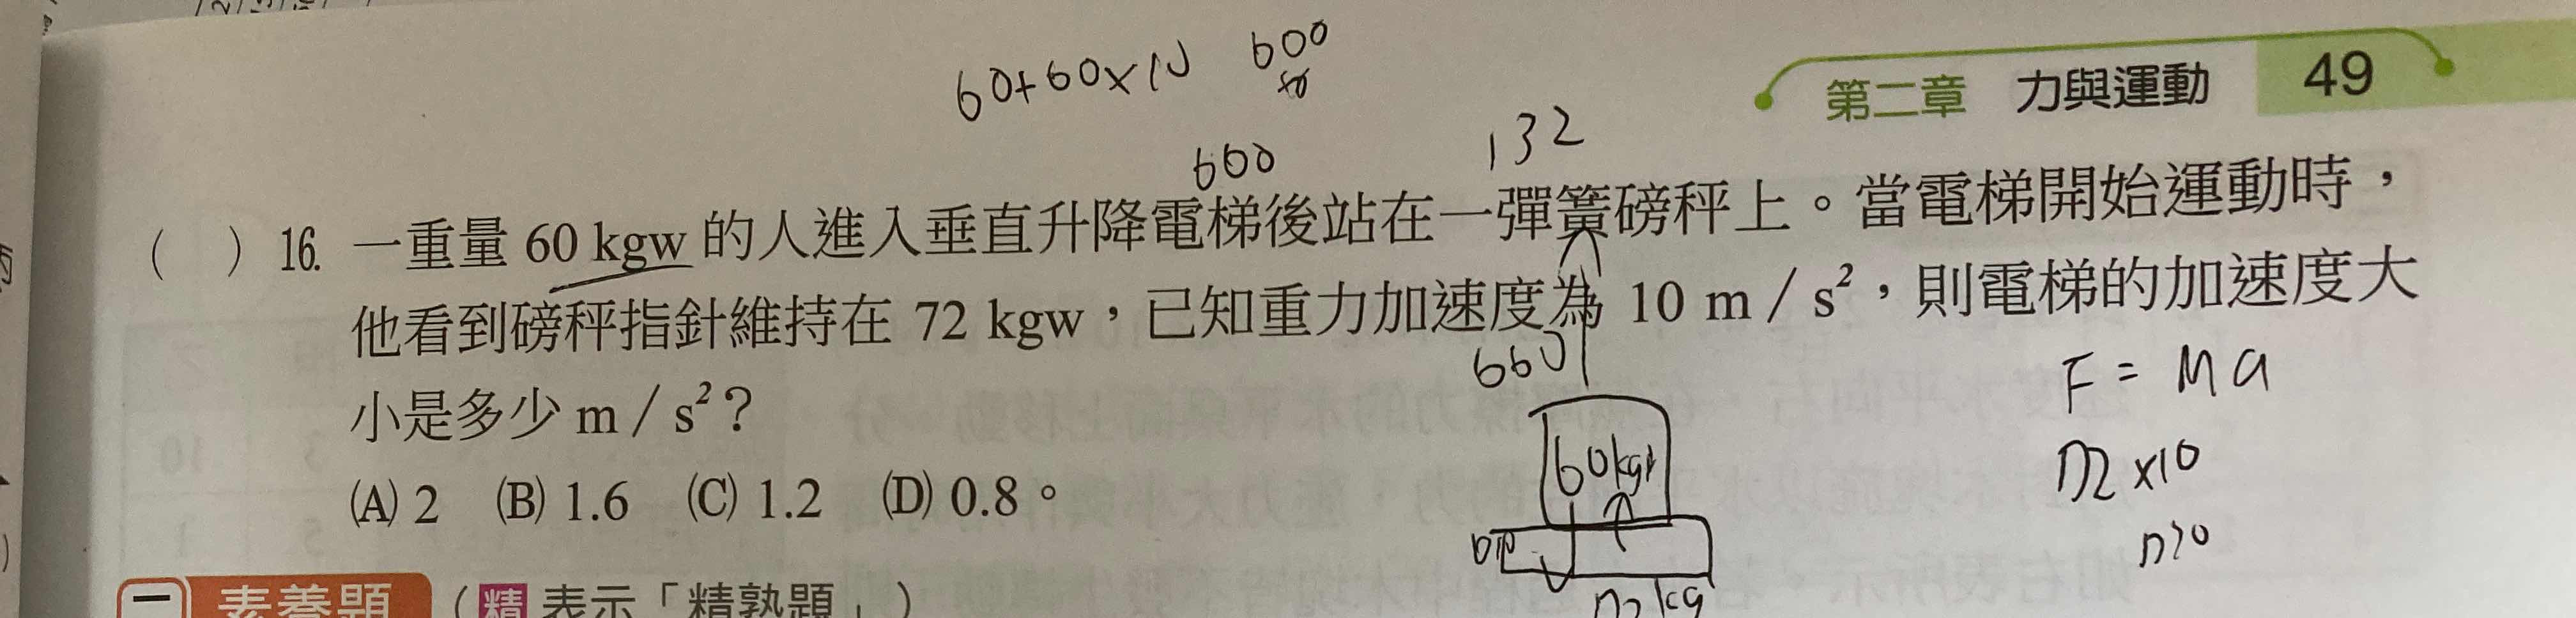 60+60×10 600
第二章 力與運動 49
660 132
( ) 16. 一重量 60 kgw 的人進入垂直升降電梯後站在一彈簧磅秤上。當電梯開始運動時，
他看到磅秤指針維持在 72 kgw，已知重力加速度為 10 m／s²，則電梯的加速度大
小是多少 m／s²？
660
F = Ma
(A) 2 (B) 1.6 (C) 1.2 (D) 0.8。
60kg
72×10
720
72kg
一 素養題 （精 表示「精熟題」）